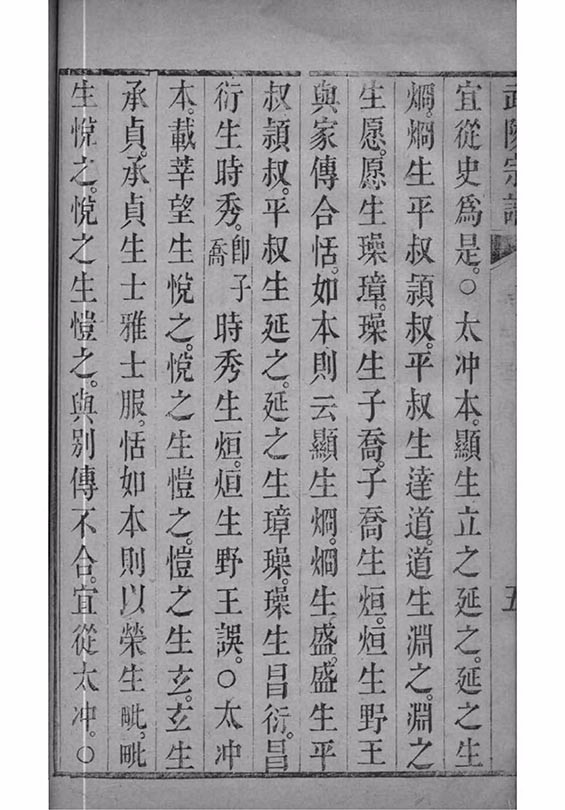 武陵宗譜
五
宜從史爲是。○太冲本。顯生立之延之。延之生
烱。烱生平叔頴叔。平叔生達道。道生淵之。淵之
生愿。愿生璪璋。璪生子喬。子喬生烜。烜生野王
與家傳合恬。如本則云顯生烱。烱生盛。盛生平
叔頴叔。平叔生延之。延之生璋璪。璪生昌衍。昌
衍生時秀。卽子喬時秀生烜。烜生野王誤。○太冲
本。載莘望生悅之。悅之生愷之。愷之生玄。玄生
承貞。承貞生士雅士服。恬如本則以榮生毗。毗
生悅之。悅之生愷之。與别傳不合。宜從太冲。○